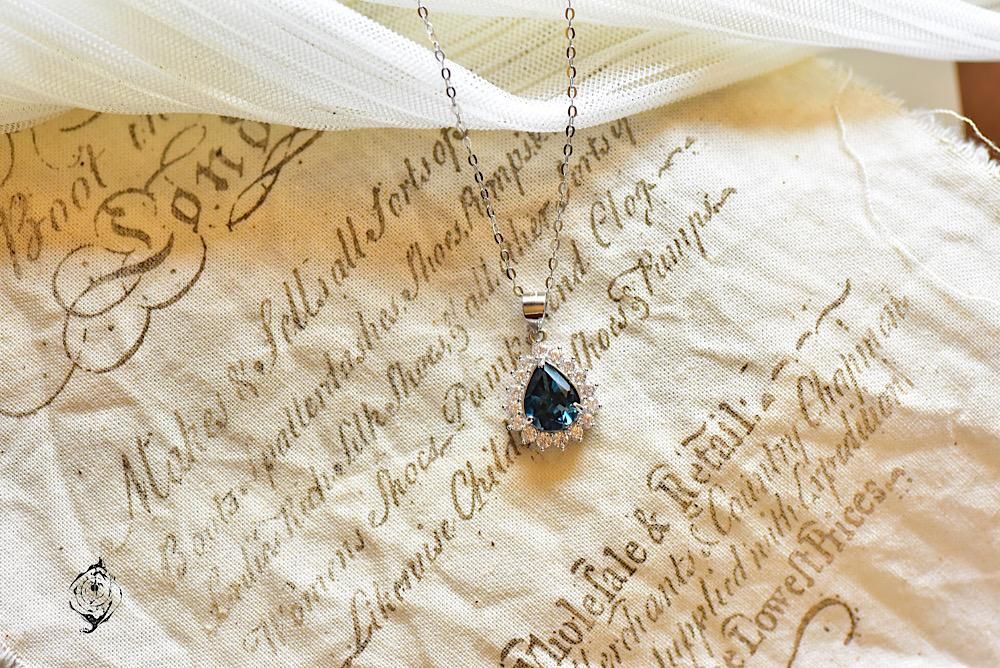 Boot in
Lond
Makes & Sells all Sorts of
Boots Spatterdashes, Shoes, Pumps
Ladies Rich Silk Shoes, & all other Sorts of
Womens Shoes Pumps and Clog
Likewise Childrens Shoes & Pumps
Wholesale & Retail
Merchants & Country Chapmen
supplied with Expedition
e Lowest Prices